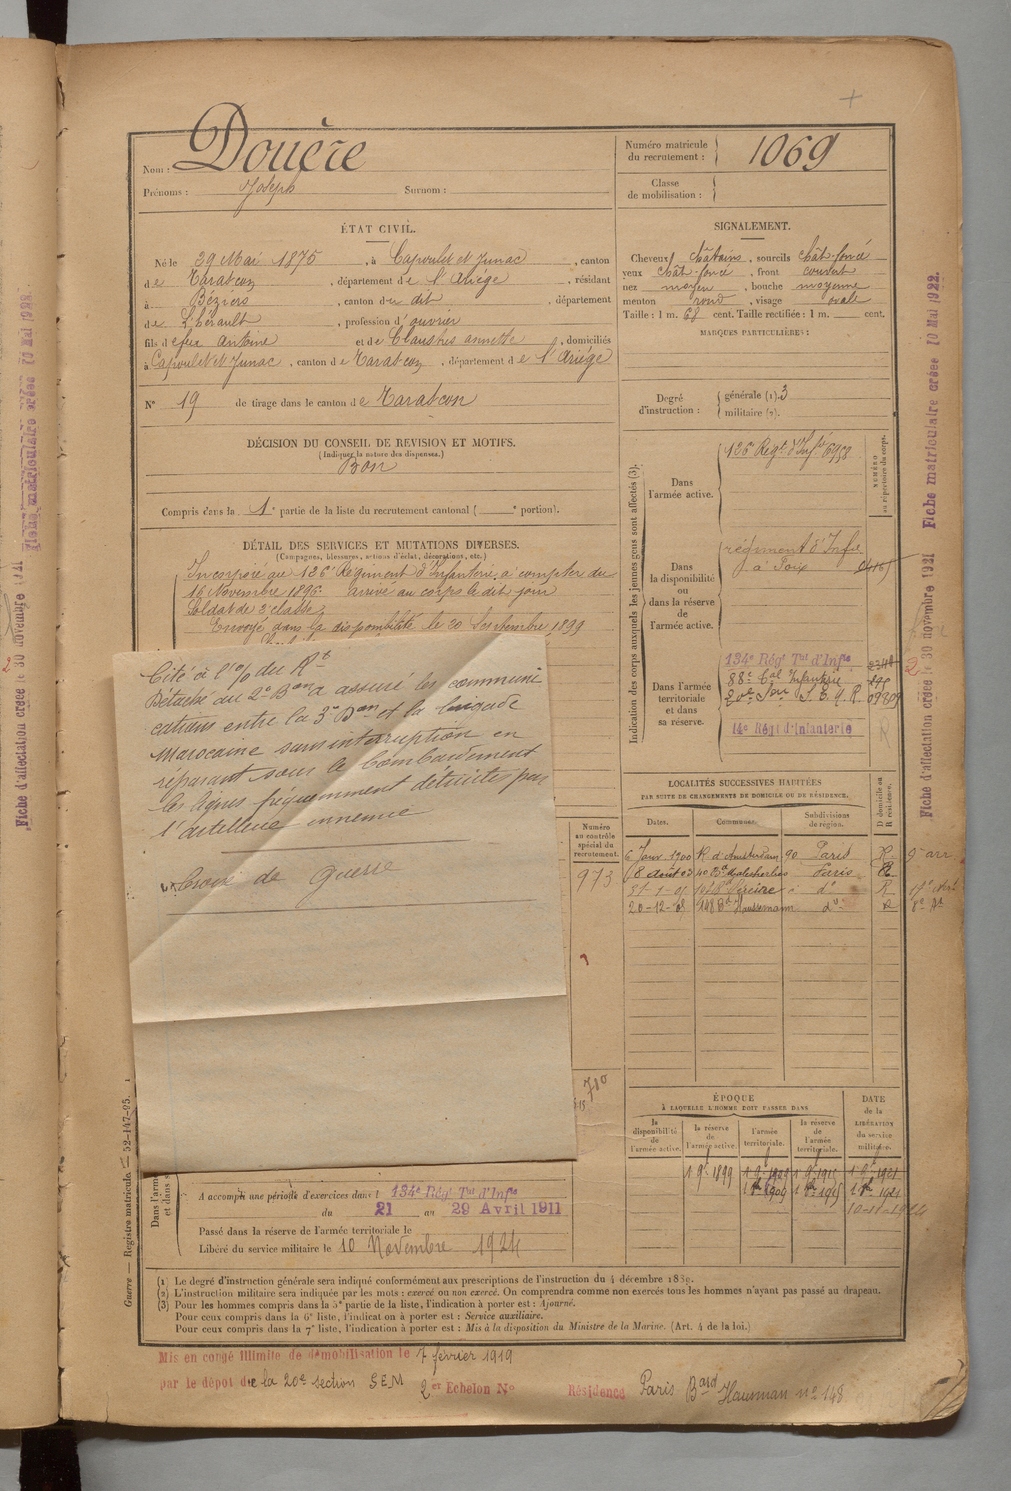 Nom : Douère
Prénoms : Joseph Surnom :
Numéro matricule du recrutement : 1069
Classe de mobilisation :
ÉTAT CIVIL.
Né le 29 Mai 1875, à Capoulet et Junac, canton
de Tarascon, département de l'Ariège, résidant
à Béziers, canton du dit, département
de L'hérault, profession d'ouvrier
fils de feu Antoine et de annette, domiciliés
à Capoulet et Junac, canton de Tarascon, département de l'Ariège
N° 19 de tirage dans le canton de Tarascon
DÉCISION DU CONSEIL DE REVISION ET MOTIFS.
(Indiquer la nature des dispenses.)
Bon
Compris dans la 1e partie de la liste du recrutement cantonal ( e portion).
DÉTAIL DES SERVICES ET MUTATIONS DIVERSES.
(Campagnes, blessures, actions d'éclat, décorations, etc.)
Incorporé au 126e Régiment d'Infanterie à compter du
16 Novembre 1896. Arrivé au corps le dit jour
Soldat de 2e classe.
Envoyé dans la disponibilité le 20 Septembre 1899
Cité à l'o/ du Rt
Détaché au 2e Bon a assuré les communi
cations entre le 3e Bon et la brigade
Marocaine sans interruption en
réparant sous le bombardement
les lignes fréquemment détruites par
l'artillerie ennemie
Croix de Guerre
SIGNALEMENT.
Cheveux châtains, sourcils chât-foncé
yeux chât-foncé, front couvert
nez moyen, bouche moyenne
menton rond, visage ovale
Taille : 1 m. 68 cent. Taille rectifiée : 1 m. cent.
MARQUES PARTICULIÈRES :
Degré d'instruction : générale (1). 3
militaire (2).
Indication des corps auxquels les jeunes gens sont affectés (3).
NUMÉRO au répertoire du corps.
Dans l'armée active.
126e Regt d'Infie 6958
Dans la disponibilité ou dans la réserve de l'armée active.
régiment d'Infie
à Foix
Dans l'armée territoriale et dans sa réserve.
134e Régt Tal d'Infie
88e Cal Infanterie
20e Son S. E. M. R.
14e Régt d'Infanterie
LOCALITÉS SUCCESSIVES HABITÉES
PAR SUITE DE CHANGEMENTS DE DOMICILE OU DE RÉSIDENCE.
Dates. Communes. Subdivisions de région. D domicile ou R résidence.
6 Janv. 1900 R. d'Amsterdam 90 Paris R 9e arr
8 Août 03 40 Bd Malesherbes Paris R
31-1-05 Pereire do R
20-12-08 148 Bd Haussemann do R 8e Ar
Numéro au contrôle spécial du recrutement.
973
ÉPOQUE
À LAQUELLE L'HOMME DOIT PASSER DANS
la disponibilité de l'armée active.
la réserve de l'armée active.
l'armée territoriale.
la réserve de l'armée territoriale.
DATE de la LIBÉRATION du service militaire.
1 9e 1899
10-11-1924
A accompli une période d'exercices dans l 134e Régt Tal d'Infie
du 21 au 29 Avril 1911
Passé dans la réserve de l'armée territoriale le
Libéré du service militaire le 10 Novembre 1924
(1) Le degré d'instruction générale sera indiqué conformément aux prescriptions de l'instruction du 4 décembre 1889.
(2) L'instruction militaire sera indiquée par les mots : exercé ou non exercé. On comprendra comme non exercés tous les hommes n'ayant pas passé au drapeau.
(3) Pour les hommes compris dans la 5e partie de la liste, l'indication à porter est : Ajourné.
Pour ceux compris dans la 6e liste, l'indication à porter est : Service auxiliaire.
Pour ceux compris dans la 7e liste, l'indication à porter est : Mis à la disposition du Ministre de la Marine. (Art. 4 de la loi.)
Mis en congé illimité de démobilisation le 7 février 1919
par le dépôt de la 20e section SEM 2er Echelon N° Résidence Paris Bard Hausman n° 148
Guerre — Registre matricule — 52-147-95.
Fiche d'affectation créée le 30 novembre 1921 Fiche matriculaire créée 10 Mai 1922.